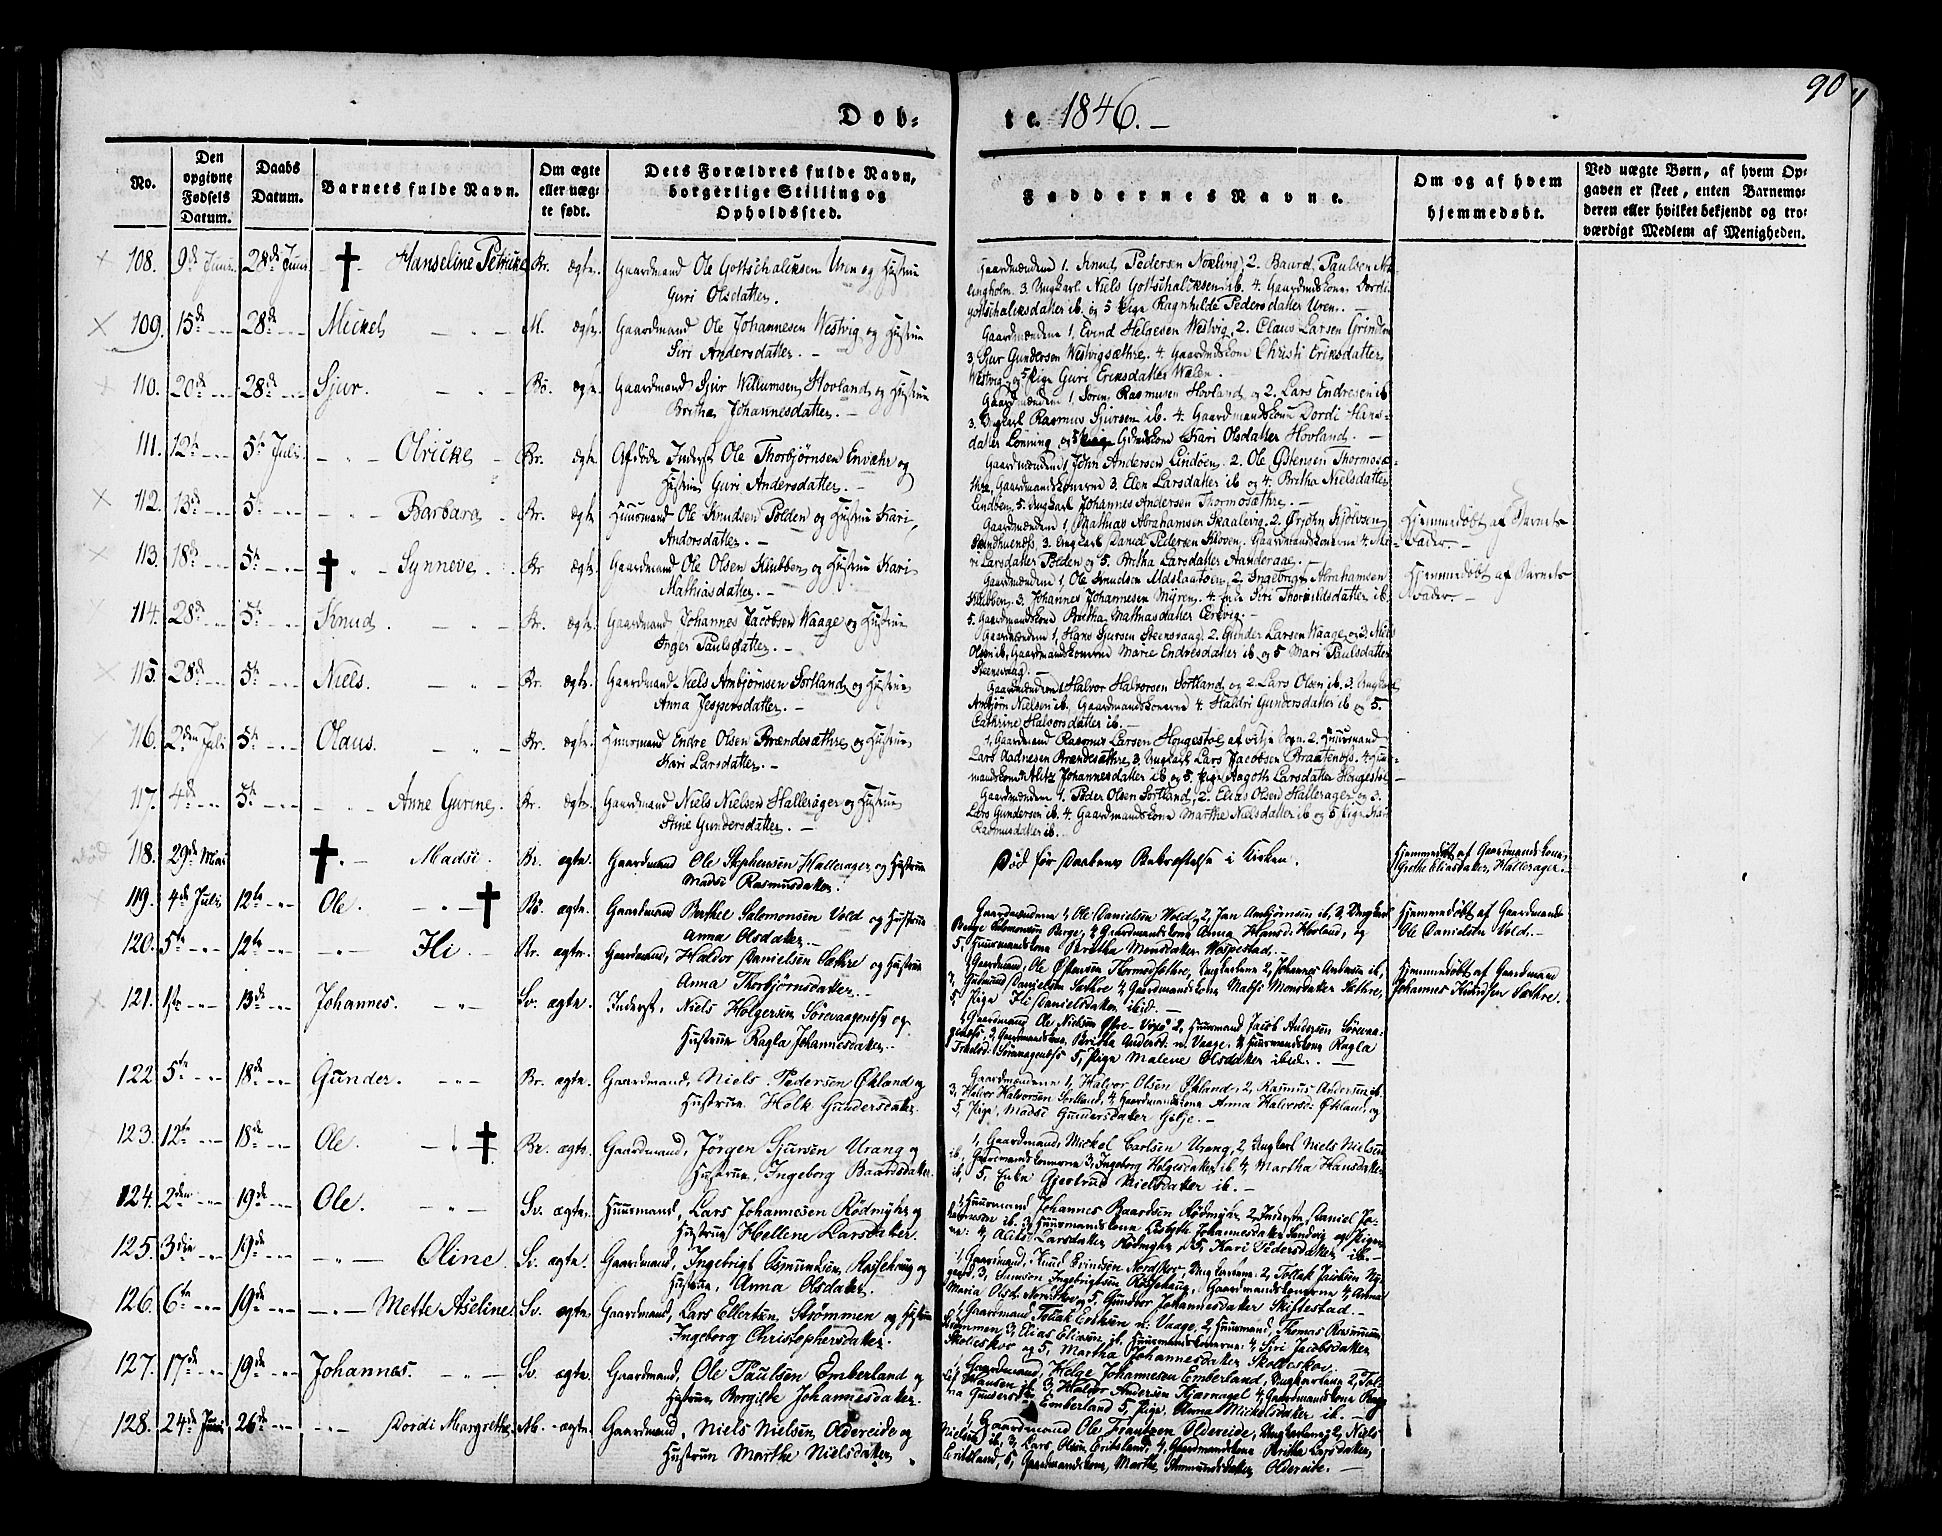 90
Døb-
te. 1846. —
No.
Den opgivne Fødsels Datum.
Daabs Datum.
Barnets fulde Navn.
Om ægte eller uæg-te født.
Dets Forældres fulde Navn, borgerlige Stilling og Opholdssted.
Faddernes Navne.
Om og af hvem hjemmedøbt.
Ved uægte Børn, af hvem Op-
gaven er skeet, enten Barnemo-
deren eller hvilket bekjendt og tro-
værdigt Medlem af Menigheden.
108. 9de Juni 28de Juni Hanseline Petricke Br. ægte. Gaardmand Ole Gottschalksen Uren og Hustrue
Guri Olsdatter.
Gaardmændene 1. Knud Pedersen Nokling, 2. Baard Paulsen
3. Ungkarl Niels Gottschalksen ib. 4. Gaardmdskone Dordi
Gottschalksdatter ib. og 5 Pige Ragnhilde Pedersdatter Uren. —
109. 15de 28de Mickel M. ægte. Gaardmand Ole Johannesen Westvig og Hustrue
Siri Andersdatter. —
Gaardmændene 1, Evind Helgesen Westvig, 2. Claus Larsen
3, Sjur Gundersen Westvigsæthre. 4. Gaardmdskone Christi Eriksdatter
Westvig og 5 Pige Guri Eriksdatter
110. 20de 28de Sjur. ægte. Gaardmand Sjur Willumsen Hovland og Hustrue
Britha Johannesdatter. —
Gaardmændene 1, Sören Rasmusen Hovland og 2. Lars Endresen ib
3. Ungkarl Rasmus Sjursen ib. 4. Gaardmandskone Dordi Hans-
datter Lönning og 5 Kari Olsdatter Hovland. —
111. 12te 5te Juli Olricke Br. ægte Afdöde Inderst Ole Thorbjörnsen og
Hustrue Guri Andersdatter. —
Gaardmændene 1, John Andersen Lindöen, 2. Ole Östensen Thormosæ-
thre, Gaardmandskonerne 3. Elen Larsdatter ib og 4. Britha Nielsdatter
Lindöen, 5. Ungkarl Johannes Andersen Thormosæthre. —
112. 13de 5te Barbara Br. ægte Huusmand Ole Knudsen Polden og Hustrue Kari
Andersdatter. —
Gaardmændene 1, Mathias Abrahamsen Skaalevig, 2.
3. Ungkarl Daniel Pedersen Gaardmandskonerne 4. Ma-
ri Larsdatter Polden og 5. Britha Larsdatter
Hjemmedøbt af Barnets
Fader. —
113. 18de 5te Synneve Br ægte Gaardmand Ole Olsen Klubben og Hustrue Kari
Mathiasdatter. —
Gaardmændene 1, Ole Knudsen 2. Ingebrigt Abrahamsen
Klubben, 3. Johannes Johannesen Myren, 4. Siri Thorkildsdatter ib,
5. Gaardmandskone Britha Mathiasdatter
Hjemmedøbt af Barnets
Fader. —
114. 28de 5te Knud Br. ægte. Gaardmand Johannes Jacobsen Waage og Hustrue
Inger Paulsdatter. —
Gaardmændene 1, Hans Sjursen Steensvaag, 2. Gunder Larsen Waage og 3, Niels
Olsen ib, Gaardmandskonerne Marie Endresdatter ib og 5 Mari Paulsdatter
Steensvaag. —
115. 28de 5te Niels. Br. ægte. Gaardmand Niels Ambjörnsen Sortland og Hustrue
Anna Jespersdatter. —
Gaardmændene 1 Halvor Halvorsen Sortland og 2. Lars Olsen ib. 3. Ungkarl
Ambjörn Nielsen ib. Gaardmandskonerne 4. Haldri Gundersdatter ib og 5.
Cathrine Halvorsdatter ib. —
116. 2den Juli 5te Olaus. Br. ægte. Huusmand Endre Olsen Brændesæthre og Hustrue
Kari Larsdatter. —
1, Gaardmand Rasmus Larsen Hougestöl 2. Huusmand
Lars Brændesæthre, 3. Ungkarl Lars Jacobsen
Johannesdatter ib og 5. Pige Aagoth Larsdatter Hougestöl
117. 4de 5te Anne Gurine. Br. ægte. Gaardmand Niels Nielsen Halleråger og Hustrue
Stine Gundersdatter. —
Gaardmændene 1. Peder Olsen Sortland, 2. Elias Olsen Hallerager og 3.
Lars Gundersen ib. 4. Gaardmandskone Marthe Nielsdatter ib og 5 Pige
Rasmusdatter ib. —
død 118. 29de Mai Madsi. Br. ægte. Gaardmand Ole Stephensen Hallerager og Hustrue
Madsi Rasmusdatter.
Død før Daabens Bekræftelse i Kirken.
Hjemmedøbt af Gaardmandskone
Grethe Eliasdatter, Hallerager. —
119. 4de Juli 12te Ole. ægte. Gaardmand Berthel Salomonsen Vold og Hustrue
Anna Olsdatter. —
Gaardmændene 1, Ole Danielsen Wold, 2, Jan Ambjörnsen ib, 3, Ungkarl
Salomonsen Berge, 4, Gaardmandskone Anna Hovland, og
5, Huusmandskone Britha Monsdatter
Hjemmedøbt af Gaardmand
Ole Danielsen Vold. —
120. 5te 12te Ili Br. ægte. Gaardmand, Haldor Danielsen Sæthre og Hustrue
Anna Thorbjörnsdatter. —
1, Gaardmand, Ole Östensen Thormosæthre, Ungkarlene 2, Johannes Andersen ib,
3, Gudmund Danielsen Sæthre 4, Gaardmandskone Madsi Monsdatter Sæthre,
5, Pige Ili Danielsdatter ibid. —
Hjemmedøbt af Gaardmand
Johannes Knudsen Sæthre.
121. 1ste 13de Johannes. Sv. ægte. Inderst, Niels Holgersen Sörevaagen og
Hustrue Ragla Johannesdatter.
1, Gaardmand Ole Nielsen Øfre-Vaage 2, Huusmand Jacob Andersen
3, Gaardmandskone, Britha Andersd: n: Vaage, 4 Huusmandskone Ragla
5, Pige Malene Olsdatter ibid. —
122 5te 18de Gunder. Br. ægte. Gaardmand, Niels Pedersen Økland og
Hustrue Holk Gundersdatter.
Gaardmændene 1, Halvor Olsen Økland, 2, Rasmus Andersen ib.
3, Halvor Halvorsen Sortland, 4, Gaardmandskone Anna Halvorsd: Økland, og
5, Pige, Madsi Gundersdatter Gilje. —
123. 12te 18de Ole Br. ægte. Gaardmand, Jörgen Sjursen Urang og
Hustrue, Ingeborg Baardsdatter.
1, Gaardmand, Mickel Carlsen Urang, 2, Ungkarl Niels Nielsen
ib, Gaardmandskonerne 3, Ingeborg Helgesdatter ib. 4, Martha Hansdatter
ib, 5, Enke Gjertrud Nielsdatter ib. —
124. 2den 19de Ole. Sv. ægte. Huusmand, Lars Johannesen Rödmyhr og
Hustrue Hellene Larsdatter.
1, Huusmand Johannes Baardsen Rödmyhr, 2, Inderste, Daniel Jo-
hannesen ib. 3, Huusmandskone Lisbeth Johannesdatter Sandvig og Piger-
ne: 4, Larsdatter Rödmyhr og 5, Kari Pedersdatter ib. —
125. 3die 19de Oline Sv. ægte. Gaardmand, Ingebrigt Osmundsen, og
Hustrue, Anna Olsdatter.
1, Gaardmand, Knud Evindsen Nordskov, Ungkarlene: 2, Tollak Jacobsen Ny-
gaard, 3, Samson Ingebrigtsen Gaardmandskonerne 4, Anna
Maria Olsd. Nordskov, 5, Gunvor Johannesdatter Skiftestad. —
126. 6te 19de Mette Aseline. Sv. ægte. Gaardmand, Lars Ellertsen, Strömmen og Hustrue
Ingeborg Christophersdatter.
1, Gaardmand Tollak Eriksen n: Vaage, 2, Huusmand, Thomas Rasmussen
Strömmen, 3, Elias Eliasen ib. Huusmandskonerne: 4, Siri Jacobsdatter
Skolleskov og 5, Martha Johannesdatter Skolleskov.
127. 17de 19de Johannes. Sv. ægte. Gaardmand, Ole Paulsen Emberland og
Hustrue Borgilte Johannesdatter.
1, Gaardmand, Helge Johannesen Emberland, Ungkarlene 2, Tol-
lef Hansen ib, 3, Haldor Andersen Kjærnagel 4, Gaardmandskone Rag-
na Gundersd: Emberland 5, Pige, Anna Mickelsdatter ib. —
128. 24de Juni 26de Dordi Margrethe. ægte. Gaardmand, Niels Nielsen, Oldereide og
Hustrue Marthe Nielsdatter.
1, Gaardmand Ole Frantzen Oldereide, Ungkarlene 2, Niels
Nielsen ib, 3, Lars, Olsen, Eriksland, 4, Gaardmandskone Britha Larsdatter,
Eriksland, 5, Gaardmandskone, Marthe Ammundsdatter Oldereide. —